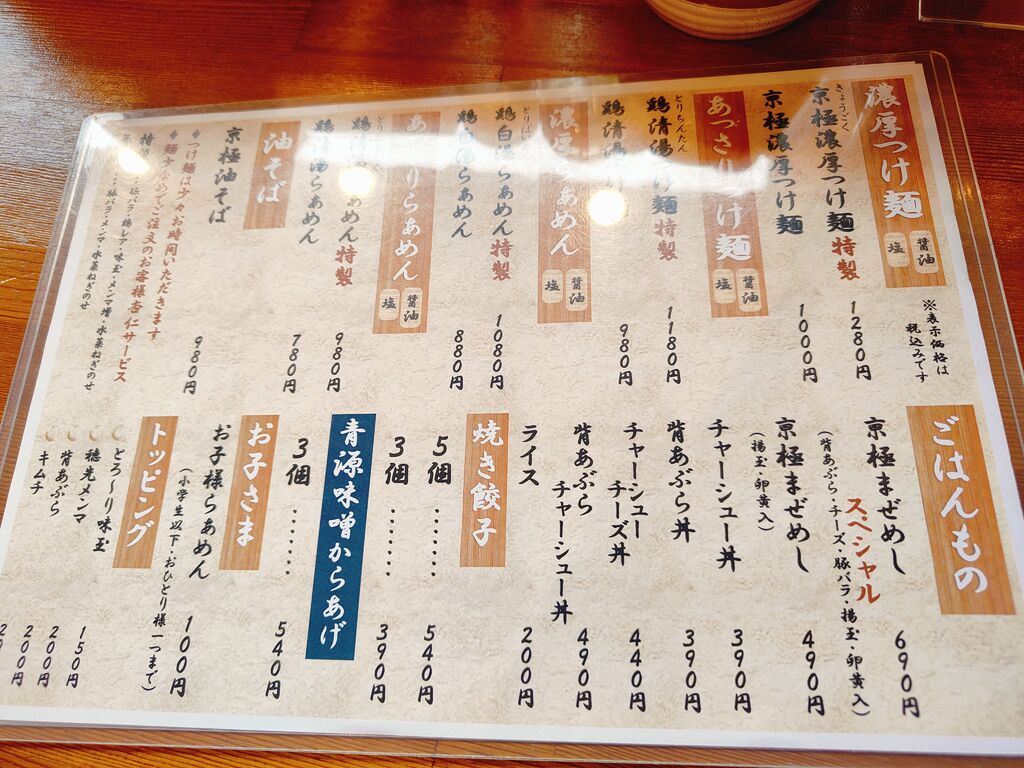 濃厚つけ麺
醤油
塩
※表示価格は
税込みです
きょうごく
京極濃厚つけ麺 特製
1280円
京極濃厚つけ麺
1000円
あっさりつけ麺
醤油
塩
とりちんたん
鶏清湯つけ麺 特製
1180円
鶏清湯
980円
濃厚らぁめん
醤油
塩
鶏白湯らぁめん 特製
1080円
鶏白湯らぁめん
880円
あっさりらぁめん
醤油
塩
鶏清湯らぁめん 特製
980円
鶏清湯らぁめん
780円
油そば
京極油そば
980円
◆つけ麺は少々お時間いただきます
◆麺少なめでご注文のお客様杏仁サービス
ごはんもの
京極まぜめし
スペシャル
(背あぶら・チーズ・豚バラ・揚玉・卵黄入)
690円
京極まぜめし
(揚玉・卵黄入)
490円
チャーシュー丼
390円
背あぶら丼
390円
チャーシュー
チーズ丼
440円
背あぶら
チャーシュー丼
490円
ライス
200円
焼き餃子
5個……
540円
3個……
390円
青源味噌からあげ
3個……
540円
お子さま
お子様らぁめん
(小学生以下・おひとり様一つまで)
100円
トッピング
とろ〜り味玉
150円
穂先メンマ
200円
背あぶら
200円
キムチ